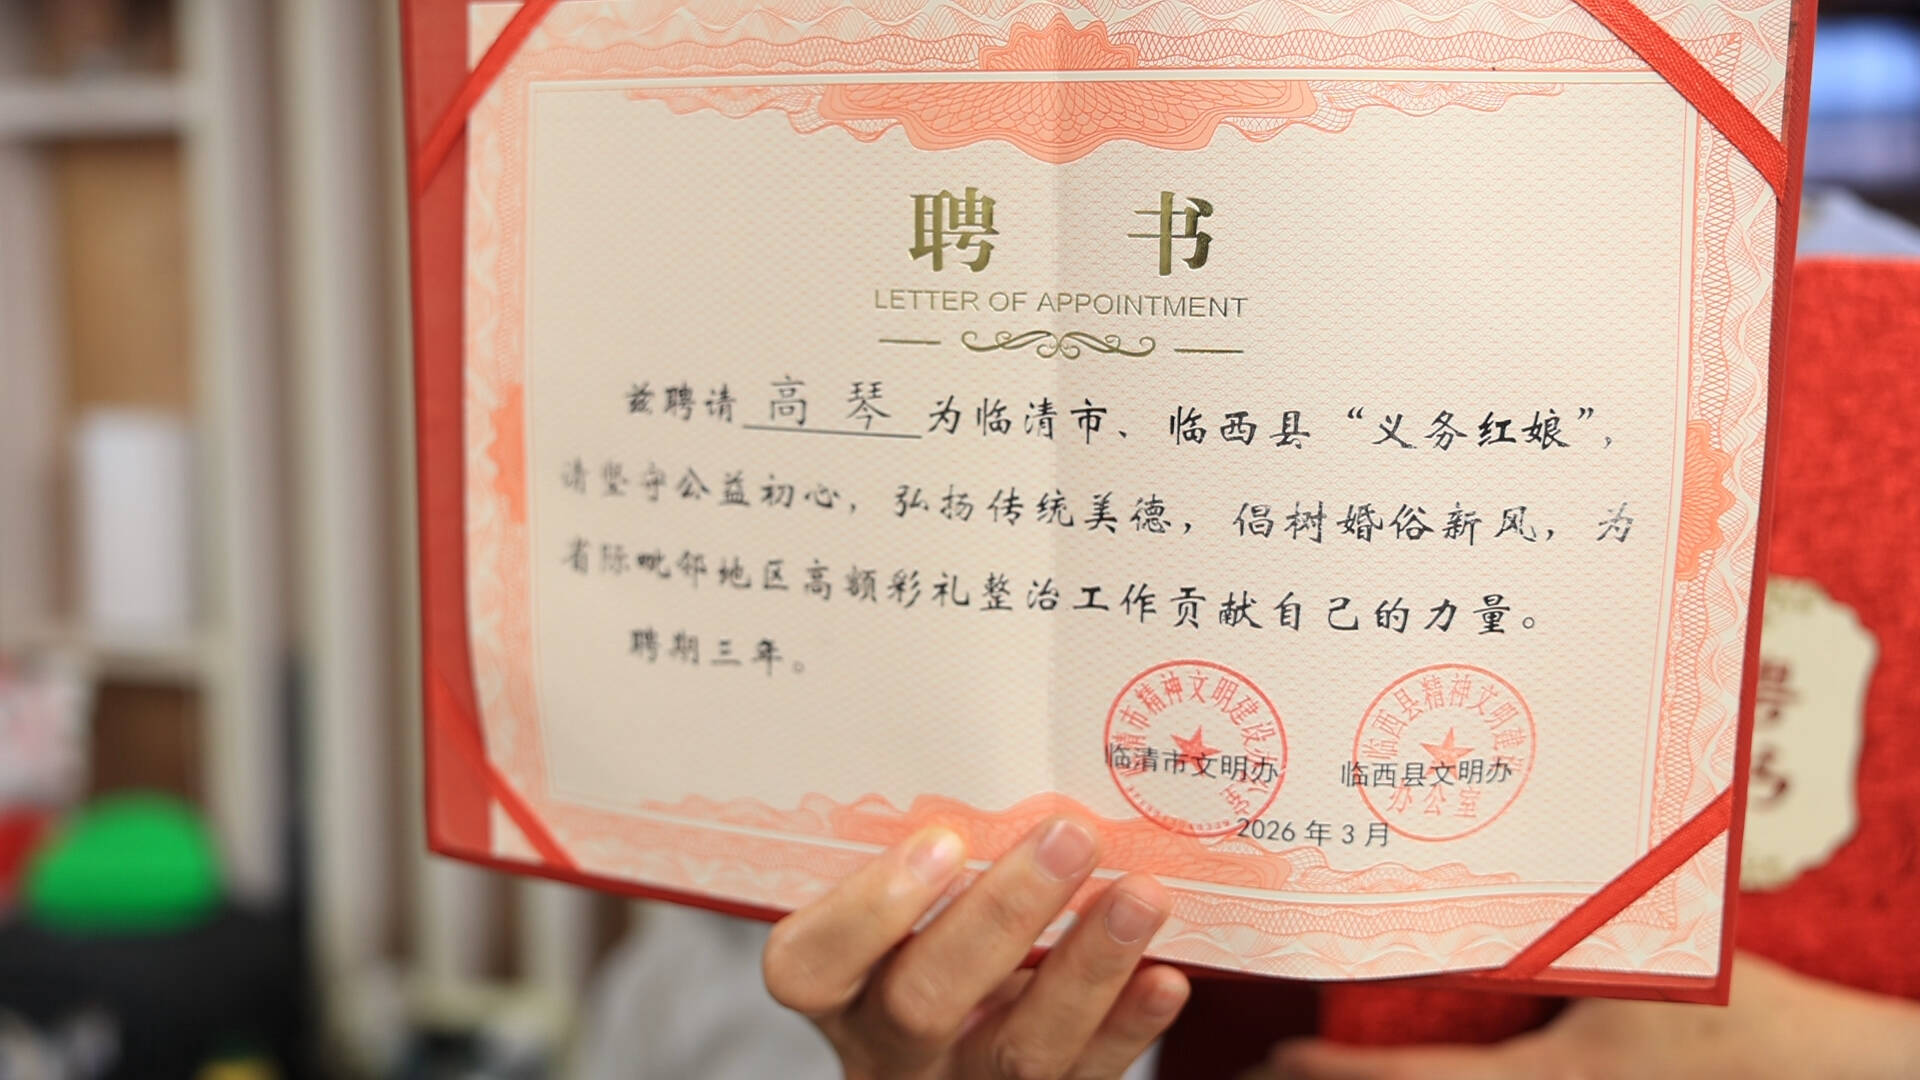 聘 书
LETTER OF APPOINTMENT
兹聘请 高 琴 为临清市、临西县“义务红娘”，
请坚守公益初心，弘扬传统美德，倡树婚俗新风，为
省际毗邻地区高额彩礼整治工作贡献自己的力量。
聘期三年。
临清市精神文明建设办公室
临西县精神文明建设办公室
临清市文明办 临西县文明办
2026 年 3 月